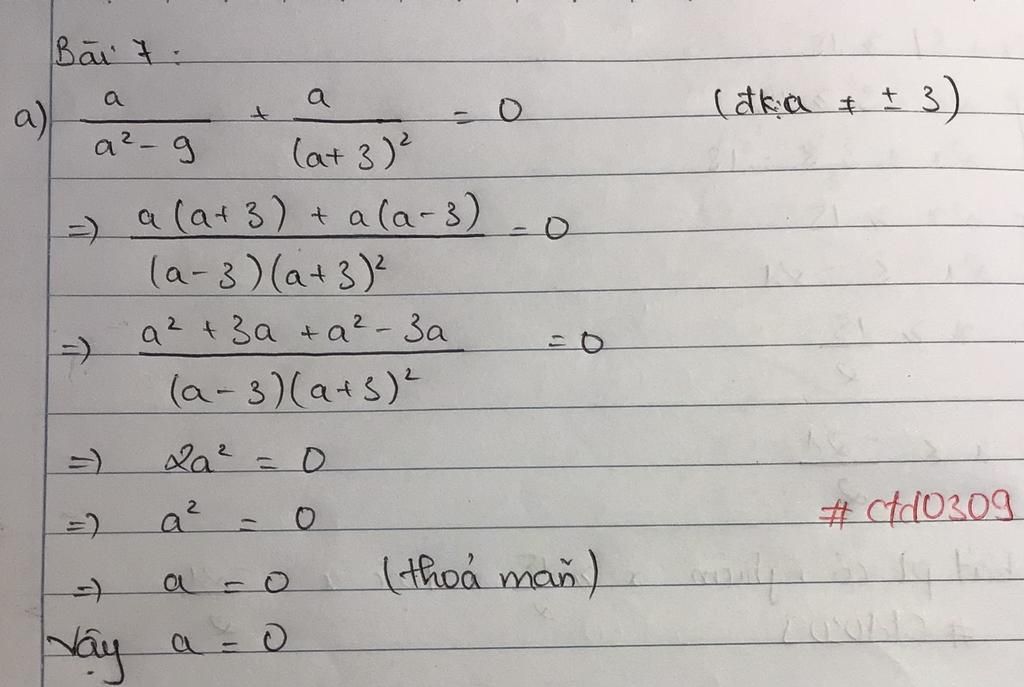 Bài 7 :
a) a / (a² - 9) + a / (a + 3)² = 0 (đk: a ≠ ± 3)
=> (a(a + 3) + a(a - 3)) / ((a - 3)(a + 3)²) = 0
=> (a² + 3a + a² - 3a) / ((a - 3)(a + 3)²) = 0
=> 2a² = 0
=> a² = 0
# ctd0309
=> a = 0 (thoả mãn)
Vậy a = 0